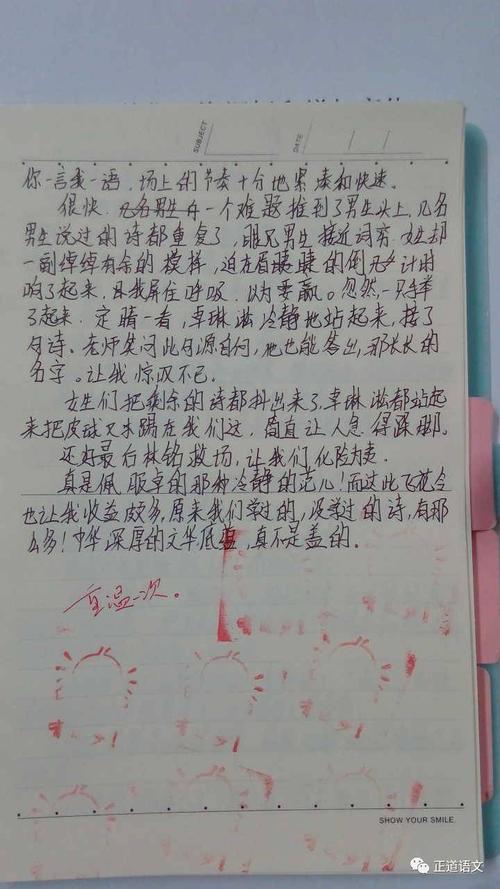 SUBJECT
DATE
你一言我一语,场上的节奏十分地紧凑和快速。
很快,一个难题推到了男生头上,几名
男生说过的诗都重复了,眼见男生接近词穷,女生却
一副绰绰有余的模样,迫在眉睫的倒计时
响了起来,我屏住呼吸,以为要赢。忽然,一只手举
了起来,定睛一看,卓琳淞冷静地站起来,接了
句诗。老师笑问此句源自何,他也能答出,那长长的
名字。让我惊叹不已。
女生们把剩余的诗都抖出来了,卓琳淞都站起
来把皮球又木踢在我们这,简直让人急得跺脚。
还好最后林铭救场,让我们化险为夷。
真是佩服卓的那种冷静的范儿!而过此飞花令
也让我收益颇多,原来我们学过的,没学过的诗,有那
么多!中华深厚的文华底蕴,真不是盖的。
重温一次。
SHOW YOUR SMILE
正道语文